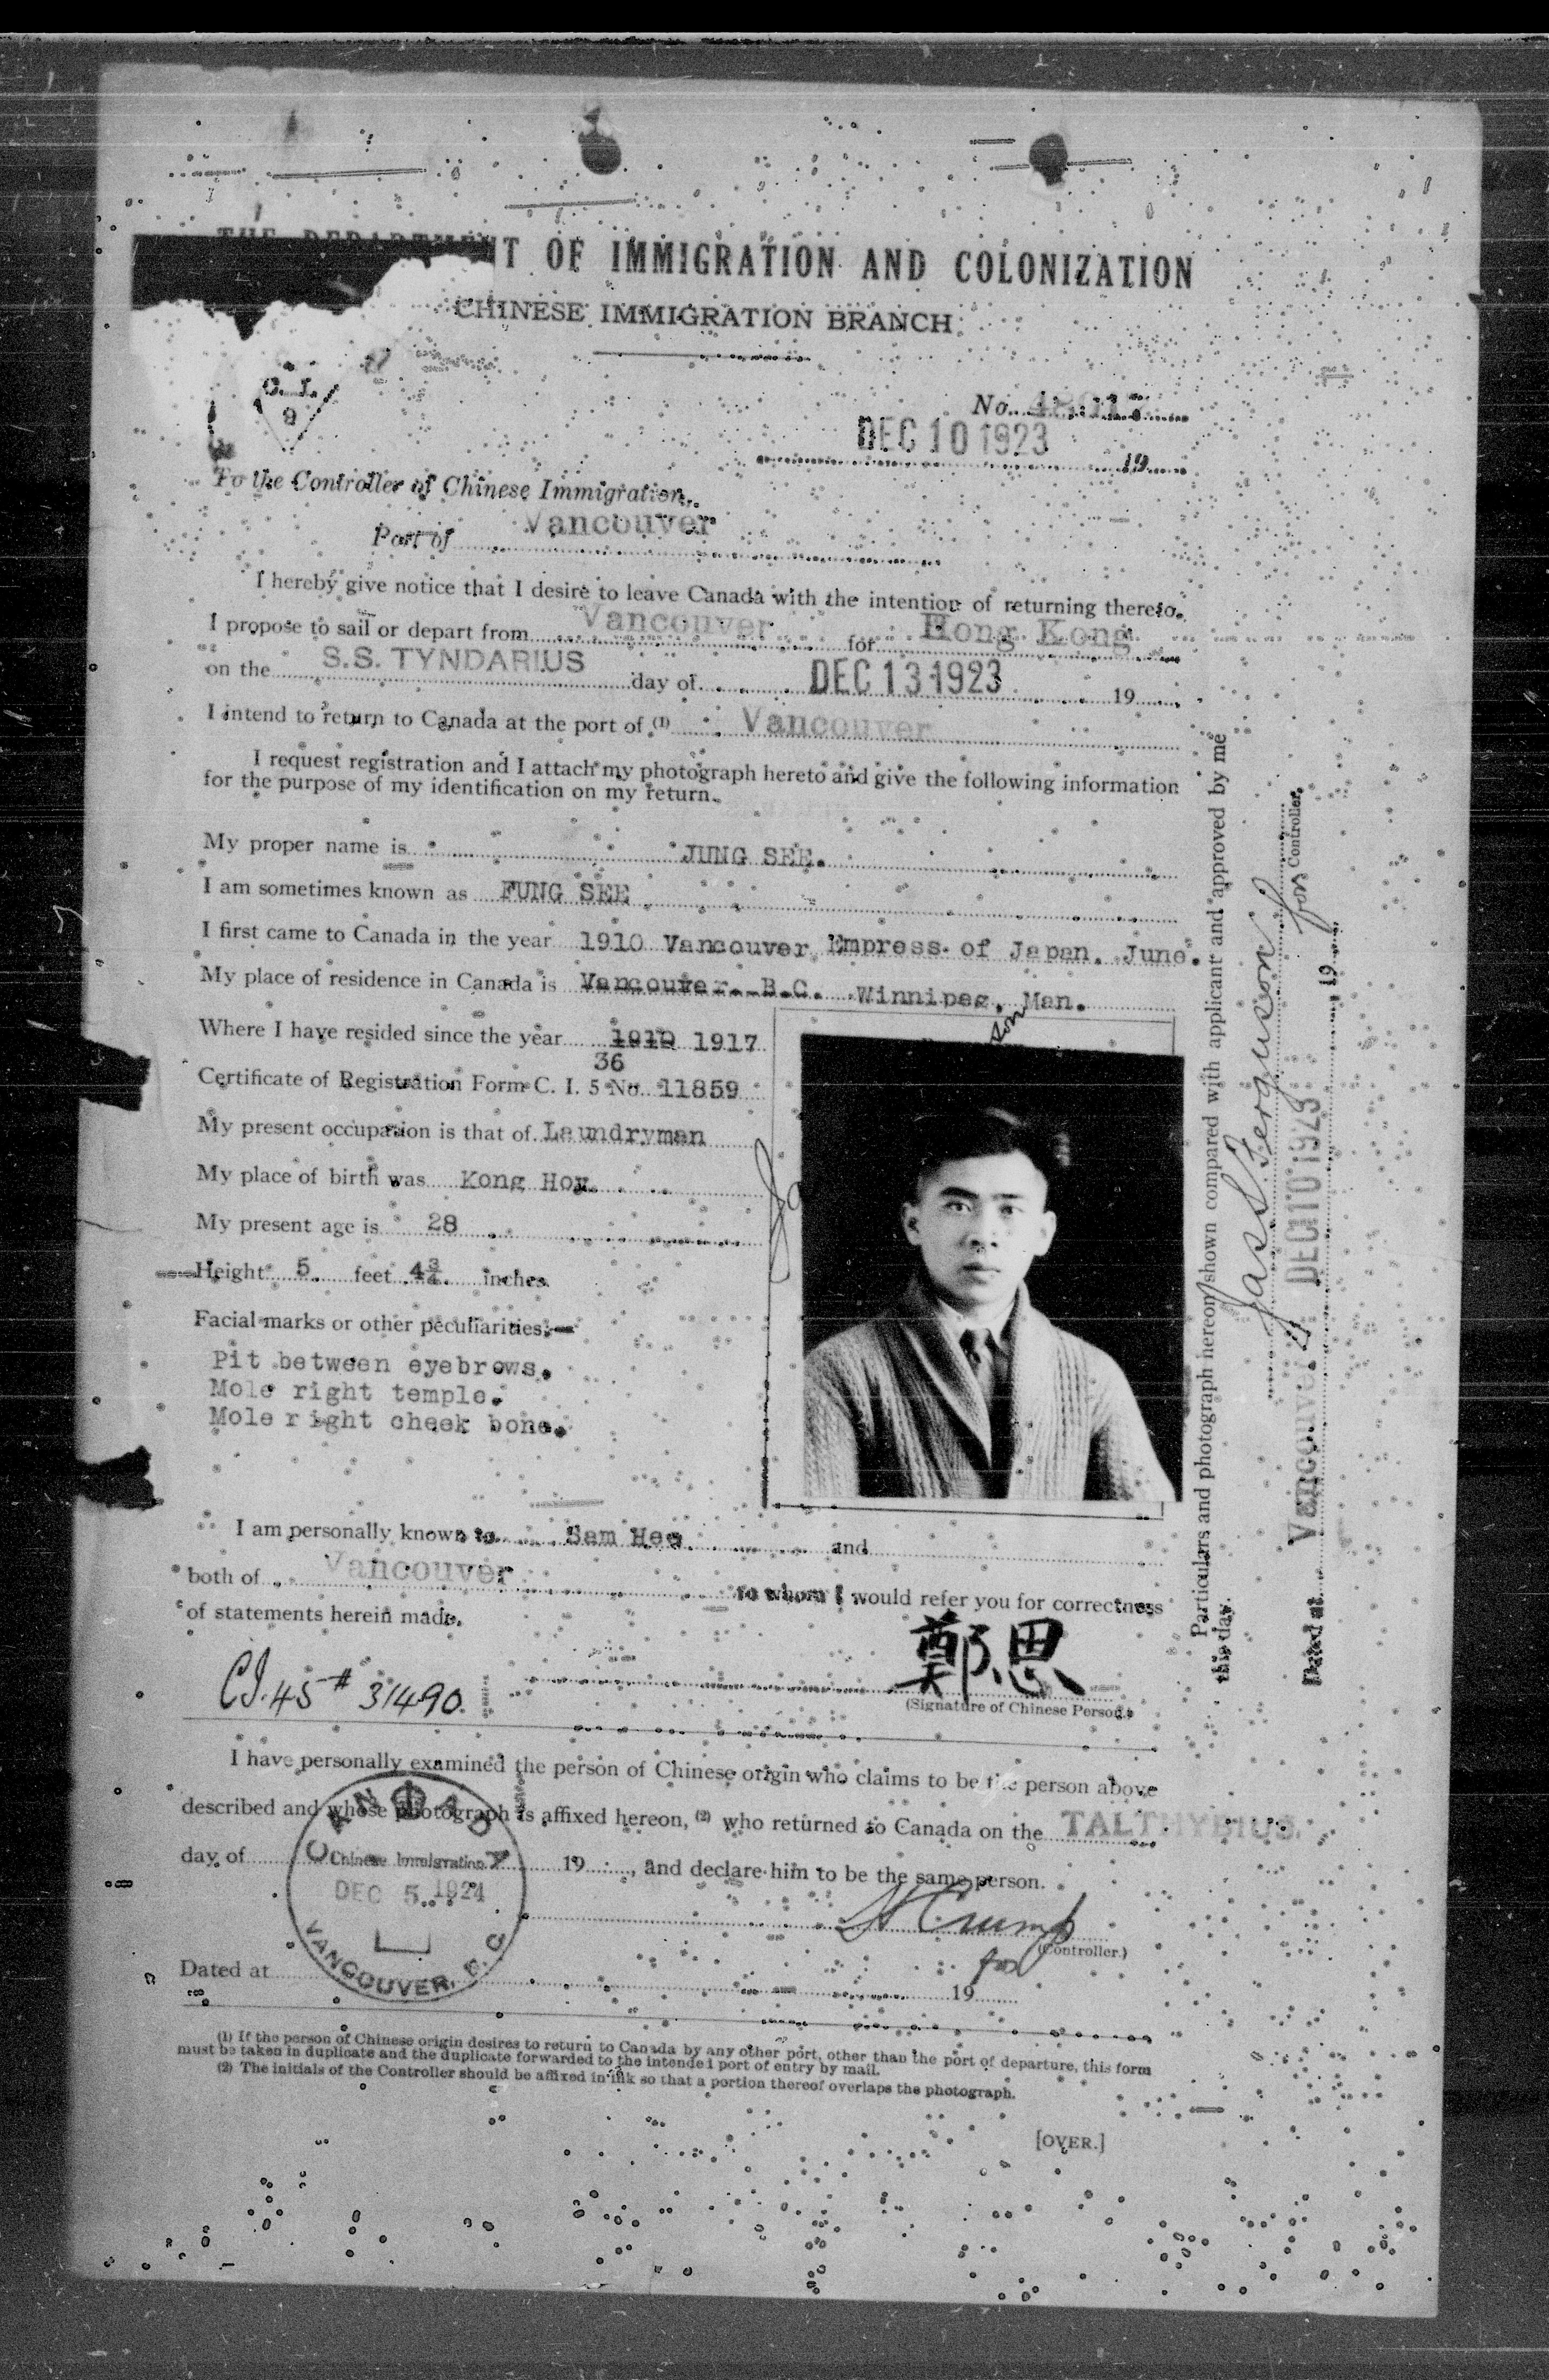 THE DEPARTMENT OF IMMIGRATION AND COLONIZATION
CHINESE IMMIGRATION BRANCH
C. I.
9
No.
DEC 10 1923 19
To the Controller of Chinese Immigration,
Port of Vancouver
I hereby give notice that I desire to leave Canada with the intention of returning thereto.
I propose to sail or depart from Vancouver for Hong Kong
on the S.S. TYNDARIUS day of DEC 13 1923 19
I intend to return to Canada at the port of (1) Vancouver
I request registration and I attach my photograph hereto and give the following information
for the purpose of my identification on my return.
My proper name is JUNG SEE.
I am sometimes known as FUNG SEE
I first came to Canada in the year 1910 Vancouver Empress of Japan. June.
My place of residence in Canada is Vancouver. B.C. Winnipeg, Man.
Where I have resided since the year 1910 1917
36
Certificate of Registration Form C. I. 5 No. 11859
My present occupation is that of Laundryman
My place of birth was Kong Hoy.
My present age is 28
Height 5 feet 4¾ inches.
Facial marks or other peculiarities:—
Pit between eyebrows.
Mole right temple.
Mole right cheek bone.
I am personally known to Sam Hee and
both of Vancouver to whom I would refer you for correctness
of statements herein made.
鄭思
C.I.45 # 31490.
(Signature of Chinese Person.)
I have personally examined the person of Chinese origin who claims to be the person above
described and whose photograph is affixed hereon, (2) who returned to Canada on the TALTHYBIUS.
day of 19 , and declare him to be the same person.
CANADA
Chinese Immigration
DEC 5 1924
VANCOUVER, B.C.
Crump
(Controller.)
for
Dated at 19
(1) If the person of Chinese origin desires to return to Canada by any other port, other than the port of departure, this form
must be taken in duplicate and the duplicate forwarded to the intended port of entry by mail.
(2) The initials of the Controller should be affixed in ink so that a portion thereof overlaps the photograph.
[OVER.]
Particulars and photograph hereon shown compared with applicant and approved by me
this day.
Jas S. Ferguson
for Controller.
Dated at Vancouver DEC 10 1923 19